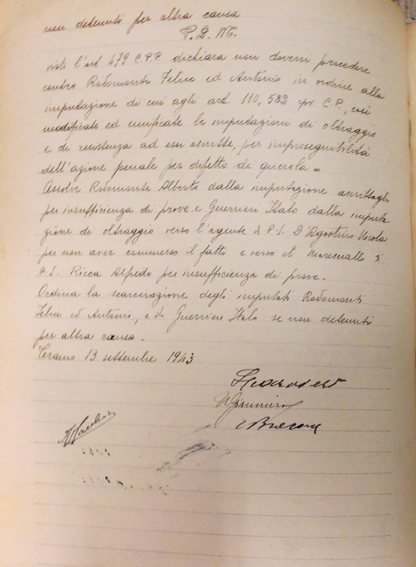 non detenuti per altra causa
P. Q. M.
visti l'art. 479 C.P.P. dichiara non doversi procedere
contro Rodomonti Felice ed Antonio in ordine alla
imputazione di cui agli art. 110, 582 C.P., così
modificate ed unificate le imputazioni di oltraggio
e di resistenza ad essi ascritte, per improseguibilità
dell'azione penale per difetto di querela =
Assolve Raimonte Alberto dalla imputazione ascrittagli
per insufficienza di prove e Guerrieri Italo dalla imputa-
zione di oltraggio verso l'agente di P.S. D'Agostino Nicola
per non aver commesso il fatto e verso il Maresciallo di
P.S. Ricca Alfredo per insufficienza di prove.
Ordina la scarcerazione degli imputati Rodomonti
Felice ed Antonio, e di Guerrieri Italo se non detenuti
per altra causa.
Teramo 13 settembre 1943